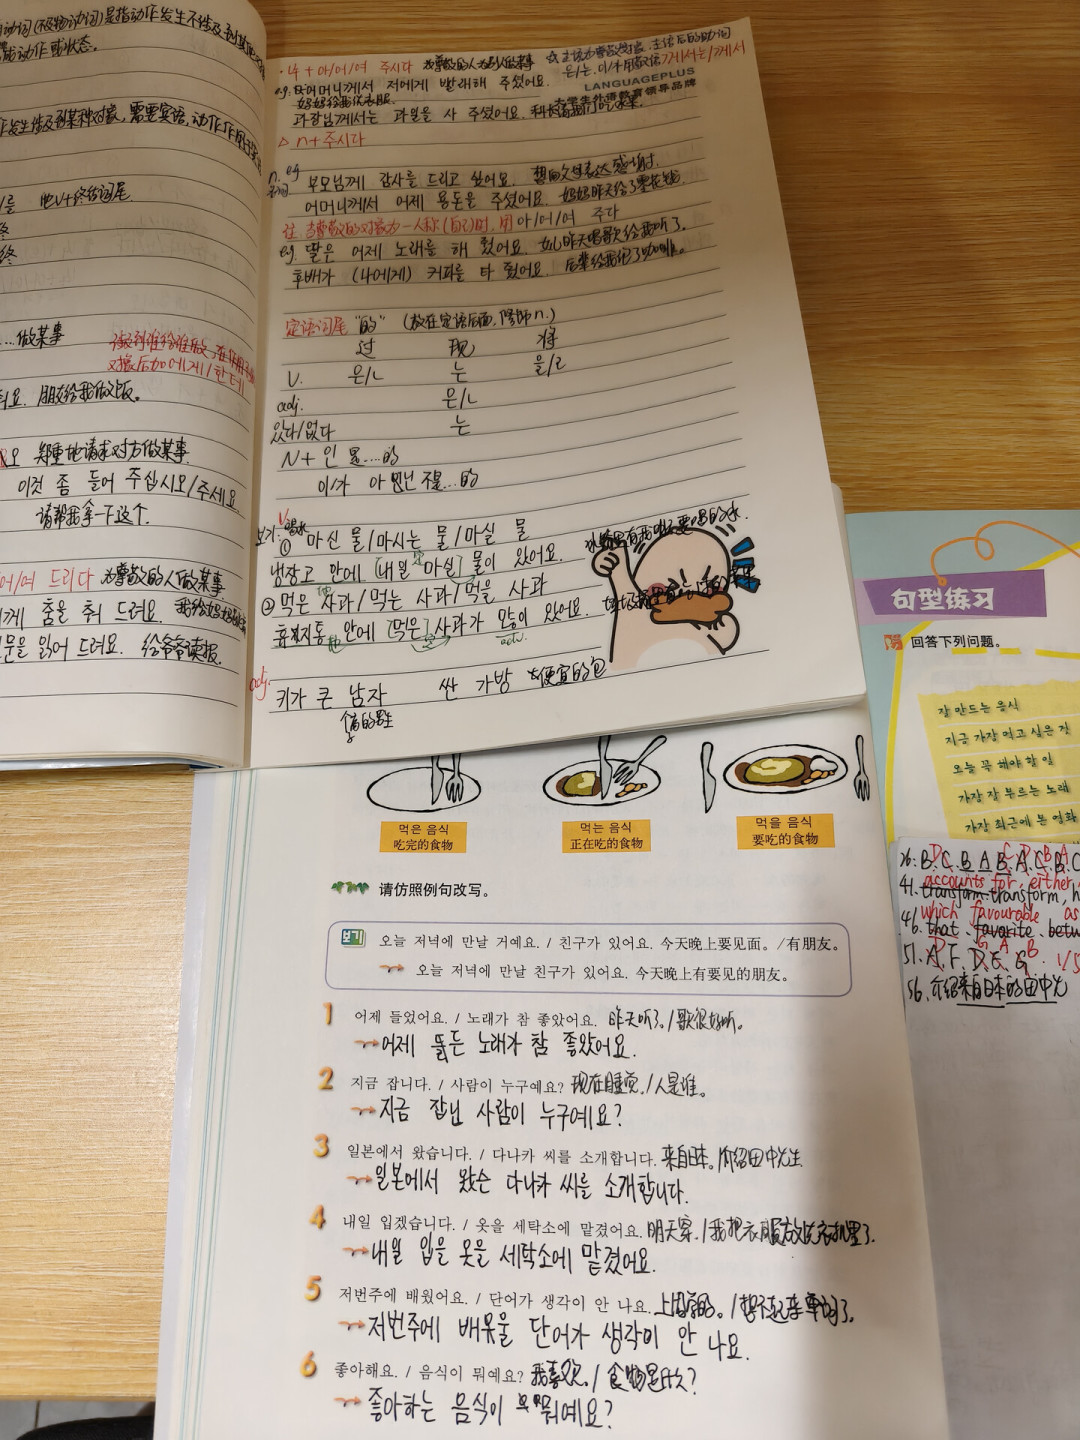 동词(不及物动词)是指动作发生不涉及到其
能动作或状态。
作发生涉及到某种对象,需要宾语,动作作用于
/를 地V+终结词尾
终
终
...做某事
对象后加에게/한테
줘요. 朋友给我做饭。
郑重地请求对方做某事
이것 좀 들어 주십시오/주세요.
请帮我拿一下这个.
아/어/여 드리다 为尊敬的人做某事
께 춤을 춰 드려요.
문을 읽어 드려요. 给爷爷读报.
+ 아/어/여 주시다 尊敬的人为我做某事
은/는, 이/가用敬语께서는/께서
eg. 어머니께서 저에게 빨래해 주셨어요.
妈妈给我洗衣服.
LANGUAGEPLUS
大学生外语教育领导品牌
과장님께서는 과일을 사 주셨어요.
△ n+주시다
eg 부모님께 감사를 드리고 싶어요. 想向父母表达感谢.
어머니께서 어제 용돈을 주셨어요. 妈妈昨天给了零花钱.
注. 当尊敬的对象为一人称(自己)时, 用 아/어/여 주다
eg. 딸은 어제 노래를 해 줬어요. 女儿昨天唱歌给我听了.
후배가 (나에게) 커피를 타 줬어요. 后辈给我泡了咖啡.
定语词尾 "的" (放在定语后面,修饰n.)
过 现 将
V. 은/ㄴ 는 을/ㄹ
adj. 은/ㄴ
있다/없다 는
N + 인 是...的
이/가 아닌 不是...的
V.
보기: 喝水
① 마신 물/마시는 물/마실 물
냉장고 안에 [내일 마실] 물이 있어요.
② 먹은 사과/먹는 사과/먹을 사과
휴지통 안에 [먹은] 사과가 많이 있어요.
adv.
adj.
키가 큰 남자 싼 가방 便宜的包
个高的男生
먹은 음식
吃完的食物
먹는 음식
正在吃的食物
먹을 음식
要吃的食物
请仿照例句改写。
보기 오늘 저녁에 만날 거예요. / 친구가 있어요. 今天晚上要见面。/有朋友。
오늘 저녁에 만날 친구가 있어요. 今天晚上有要见的朋友。
1 어제 들었어요. / 노래가 참 좋았어요. 昨天听了。/歌很好听。
어제 들은 노래가 참 좋았어요.
2 지금 잡니다. / 사람이 누구예요? 现在睡觉. /人是谁。
지금 잡닌 사람이 누구예요?
3 일본에서 왔습니다. / 다나카 씨를 소개합니다. 来自日本。/介绍田中先生
일본에서 왔슨 다나카 씨를 소개합니다.
4 내일 입겠습니다. / 옷을 세탁소에 맡겼어요. 明天穿. /我把衣服放洗衣机里了.
내일 입을 옷을 세탁소에 맡겼어요.
5 저번주에 배웠어요. / 단어가 생각이 안 나요. 上周学的. /想不起来单词了.
저번주에 배웃을 단어가 생각이 안 나요.
6 좋아해요. / 음식이 뭐예요? 我喜欢. /食物是什么?
좋아하는 음식이 뭐예요?
句型练习
回答下列问题。
잘 만드는 음식
지금 가장 먹고 싶은 것
오늘 꼭 해야 할 일
가장 잘 부르는 노래
가장 최근에 본 영화
26. B. C. B A B. A. C. B. C
accounts for, either
41. transform. transform, h
which favourable as
46. that. favorite. betw
51. A. F. D. E. G. 1/5
56. 介绍来自日本的田中先